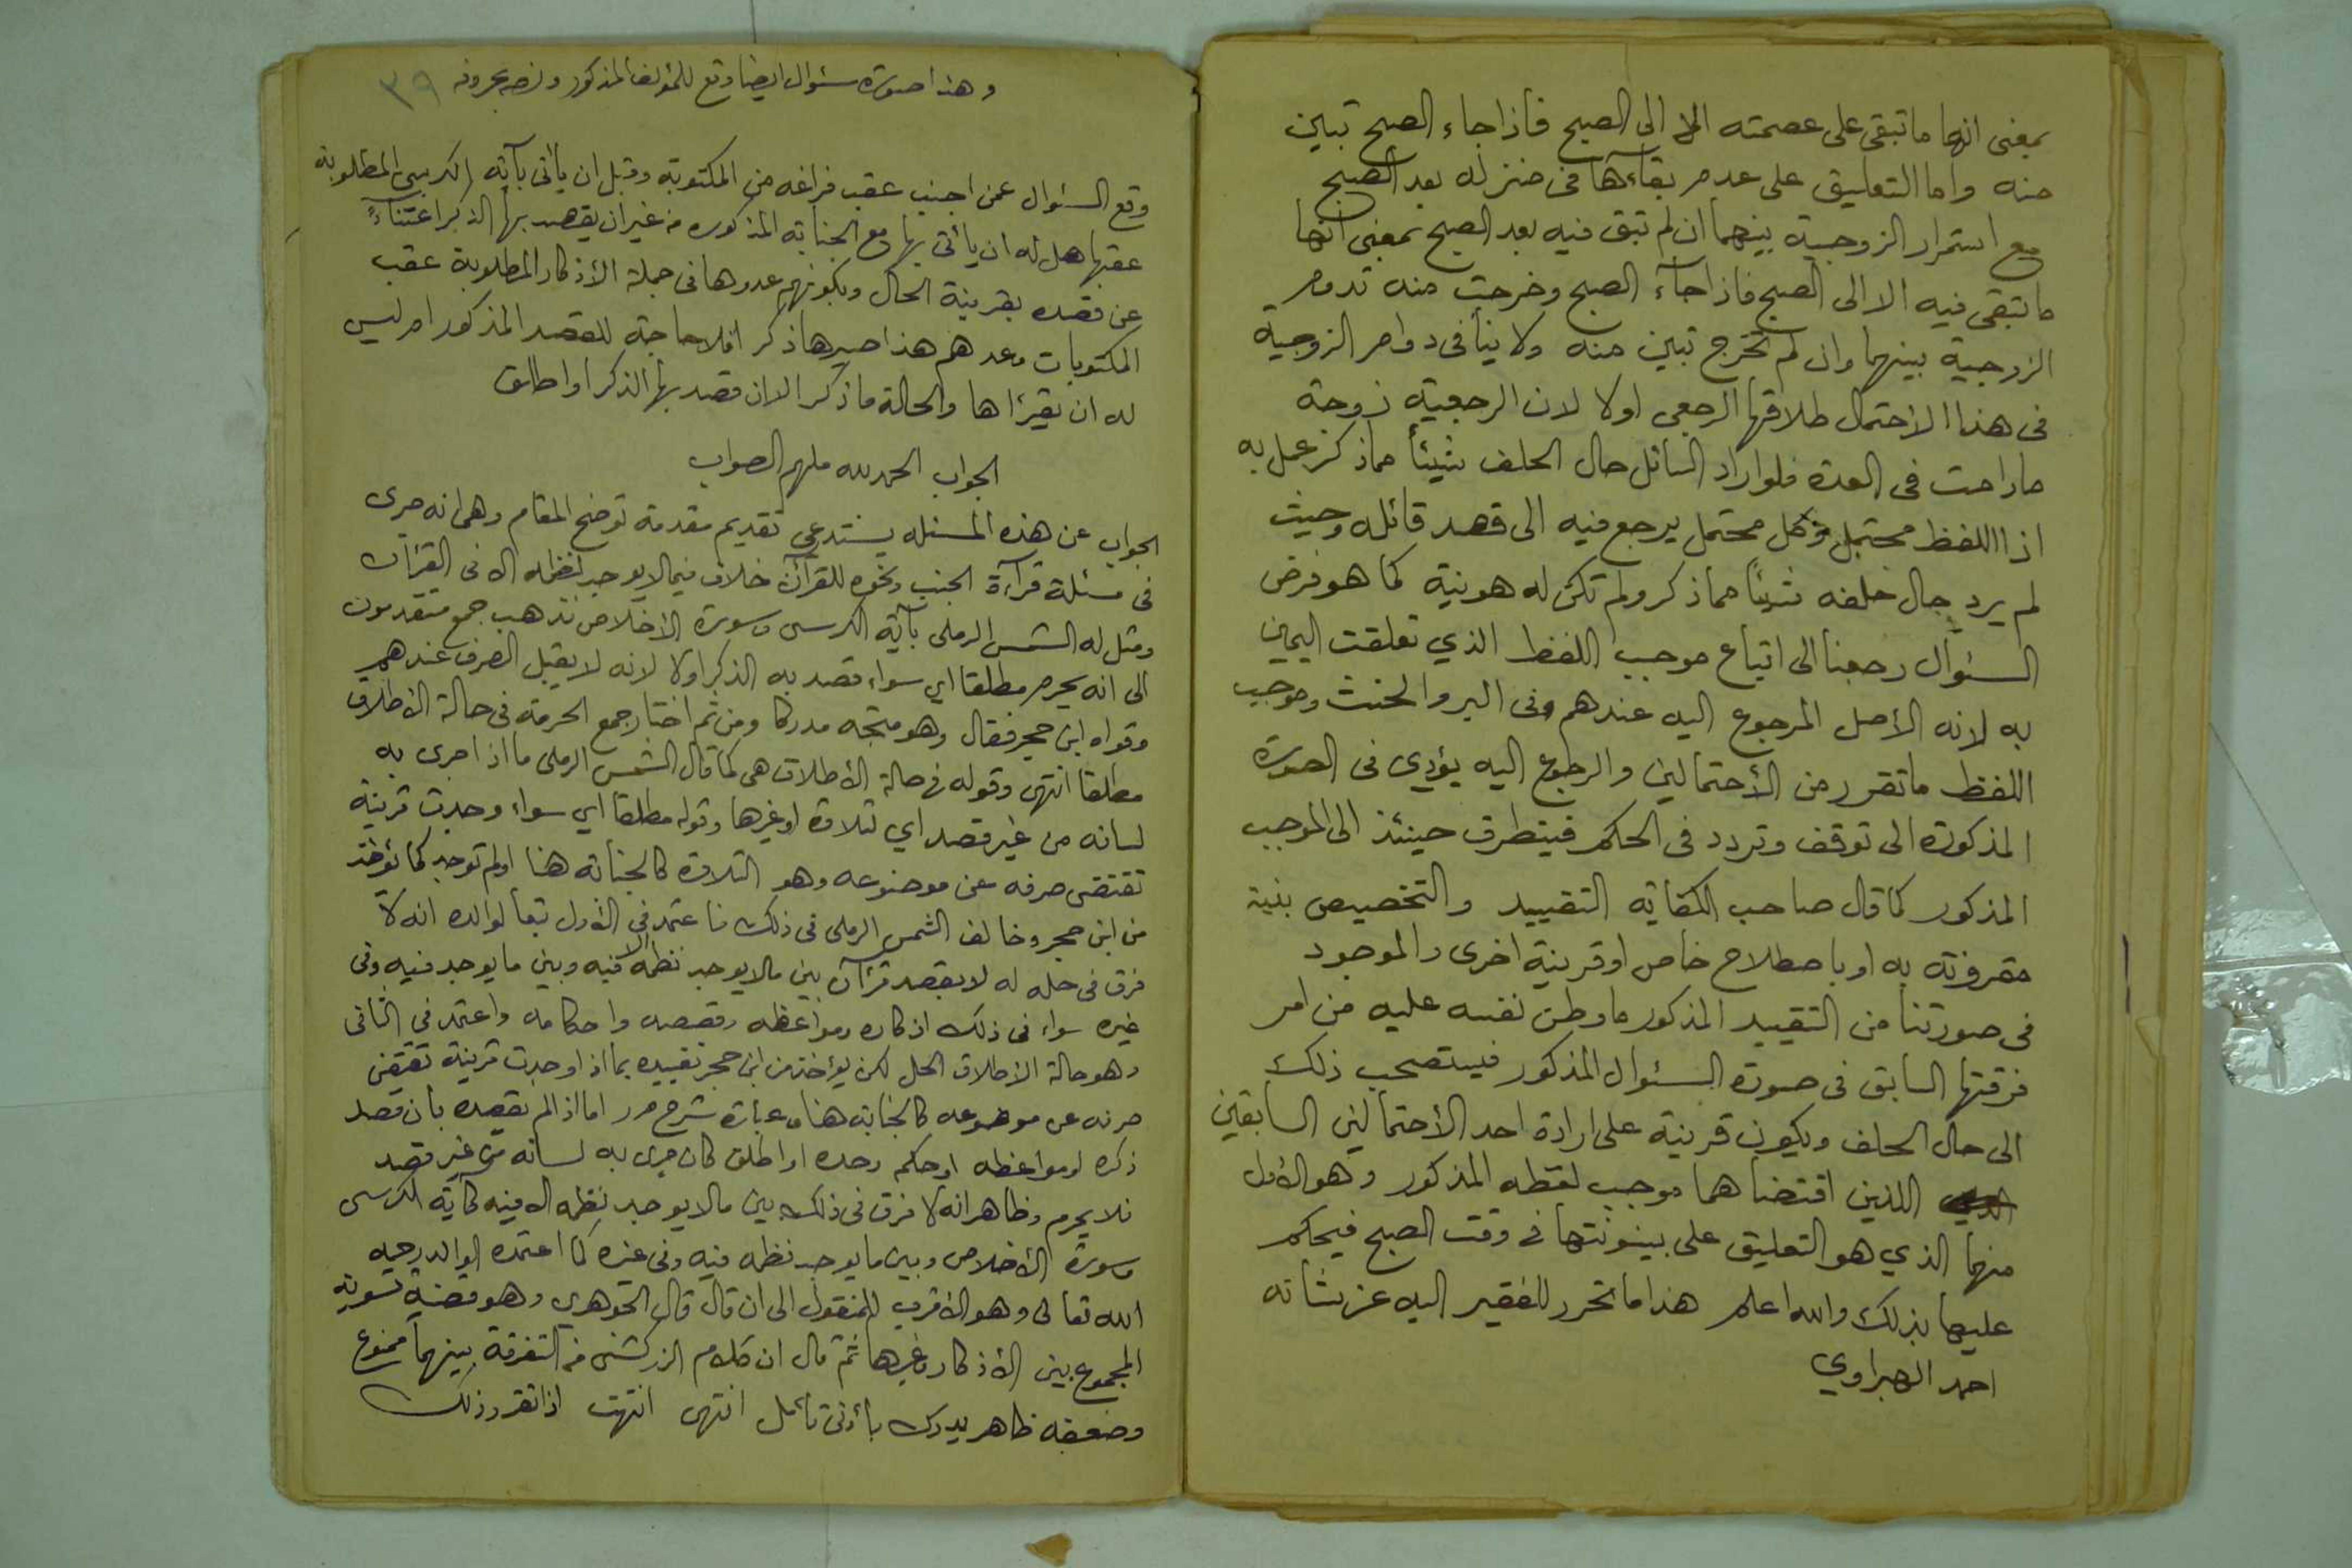 بمعنى انها ما تبقى على عصمته الا الى الصبح فاذا جاء الصبح تبين
منه واما التعليق على عدم بقاءها فى منزله بعد الصبح
مع استمرار الزوجية بينهما ان لم تبق فيه بعد الصبح بمعنى انها
ما تبقى فيه الا الى الصبح فاذا جآء الصبح وخرجت منه تدوم
الزوجية بينهما وان لم تخرج تبين منه ولا ينافى دوام الزوجية
فى هذا الاحتمال طلاقها الرجعي اولا لان الرجعية زوجة
ما دامت فى العدة فلو اراد السائل حال الحلف شيئاً مما ذكر عمل به
اذ اللفظ محتمل وكل محتمل يرجع فيه الى قصد قائله وحيث
لم يرد حال حلفه شيئاً مما ذكر ولم تكن له هو نية كما هو فرض
السئوال رجعنا الى اتباع موجب اللفظ الذي تعلقت اليمين
به لانه الأصل المرجوع اليه عندهم فى البر والحنث وموجب
اللفظ ما تقرر من الأحتمالين والرجوع اليه يؤدي فى الصورة
المذكورة الى توقف وتردد فى الحكم فيتطرق حينئذ الى الموجب
المذكور كما قال صاحب الكفاية التقييد والتخصيص بنية
مقرونة به او باصطلاح خاص او قرينة اخرى والموجود
فى صورتنا من التقييد المذكور ما وطن نفسه عليه من امر
فرقتها السابق فى صورة السئوال المذكور فيستصحب ذلك
الى حال الحلف ويكون قرينة على ارادة احد الأحتمالين السابقين
اللذين اقتضاهما موجب لفظه المذكور وهو الأول
منهما الذي هو التعليق على بينونتها فى وقت الصبح فيحكم
عليها بذلك والله اعلم هذا ما تحرر للفقير اليه عز شانه
احمد الهبراوي
وهذا صورة سئوال ايضا وقع للمؤلف المذكور ونصه بحروفه ٣٩
وقع السئوال عمن اجنب عقب فراغه من المكتوبة وقبل ان يأتى بآية الكرسي المطلوبة
عقبها هل له ان يأتى بها مع الجنابة المذكوره من غير ان يقصد بها الذكر اعتناءً
عن قصده بقرينة الحال وبكونهم عدوها فى جملة الأذكار المطلوبة عقب
المكتوبات وعدهم هذا صيرها ذكر افلا حاجة للقصد المذكور ام ليس
له ان يقرأها والحالة ما ذكر الا ان قصد بها الذكر او اطلق
الجواب الحمد لله ملهم الصواب
الجواب عن هذه المسئله يستدعي تقديم مقدمة توضح المقام وهى انه جرى
فى مسئلة قرآءة الجنب ونحوه للقرآن خلاف فيما لا يوجد نظمه الا فى القرآن
ومثل له الشمس الرملى بآية الكرسى وسورة الاخلاص فذهب جمع متقدمون
الى انه يحرم مطلقا اي سواء قصد به الذكر اولا لانه لا يقبل الصرف عندهم
وقواه ابن حجر فقال وهو متجه مدركا ومن ثم اختار جمع الحرمة فى حالة الأطلاق
مطلقا انتهى وقوله فى حالة الأطلاق هى كما قال الشمس الرملى ما اذا جرى به
لسانه من غير قصد اي لتلاوة او غيرها وقوله مطلقا اي سواء وجدت قرينة
تقتضى صرفه عن موضوعه وهو التلاوة كالجنابة هنا او لم توجد كما يؤخذ
من ابن حجر وخالف الشمس الرملى فى ذلك فاعتمد فى الأول تبعا لوالده انه لا
فرق فى حله له لا بقصد قرآن بين ما لا يوجد نظمه الا فيه وبين ما يوجد فيه وفى
غيره سواء فى ذلك اذكاره ومواعظه وقصصه واحكامه واعتمد فى الثانى
وهو حالة الأطلاق الحل لكن يؤخذ من ابن حجر تقييده بما اذا وجدت قرينة تقتضى
صرفه عن موضوعه كالجنابة هنا وعبارة شرح م ر اما اذا لم يقصده بأن قصد
ذكره او مواعظه او حكمه وحده او اطلق كان جرى به لسانه من غير قصد
فلا يحرم وظاهر انه لا فرق فى ذلك بين ما لا يوجد نظمه الا فيه كآية الكرسى
وسورة الأخلاص وبين ما يوجد نظمه فيه وفى غيره كما اعتمده الوالد رحمه
الله تعالى وهو الأقرب للمنقول الى ان قال قال الجوهري وهو قضية تسوية
المجموع بين الأذكار وغيرها ثم قال ان كلام الزركشى من التفرقة بينهما ممنوع
وضعفه ظاهر يدرك بأدنى تأمل انتهى انتهت اذا تقرر ذلك